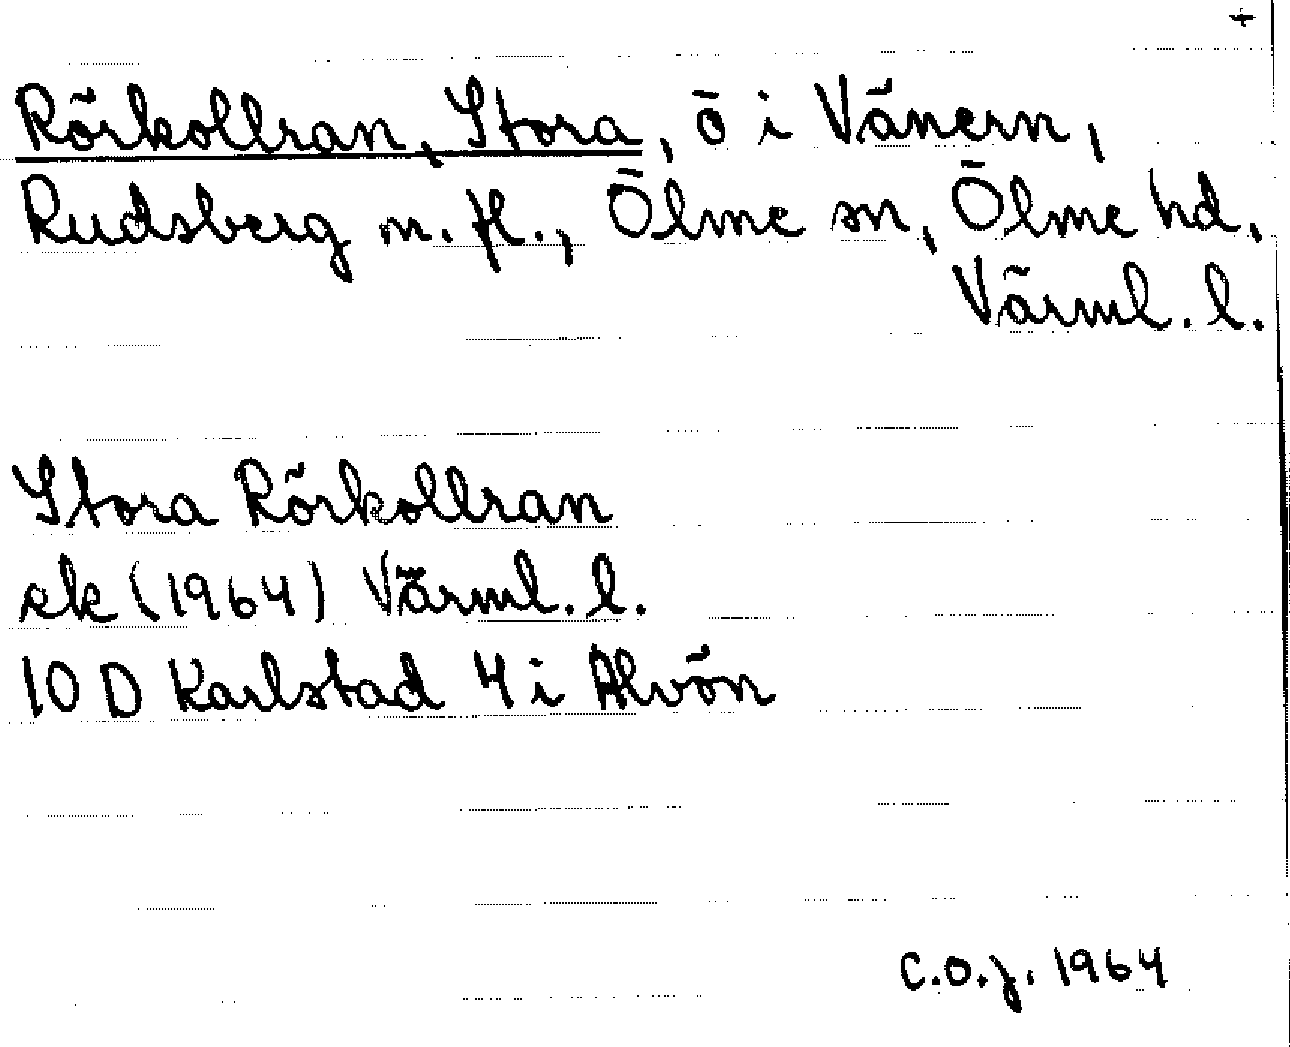 +
Rörkollran, Stora, ö i Vänern,
Rudsberg m. fl., Ölme sn, Ölme hd,
Värml. l.
Stora Rörkollran
ek (1964) Värml. l.
10 D Karlstad 4 i Alvön
C.O.J. 1964